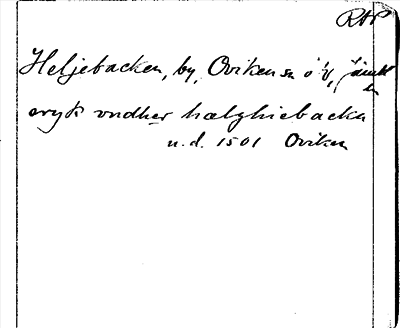 RAP
Heljebacken, by, Oviken sn o. V, Jämtl
ln
eryk vndher hælghiebacka
n.d. 1501 Oviken